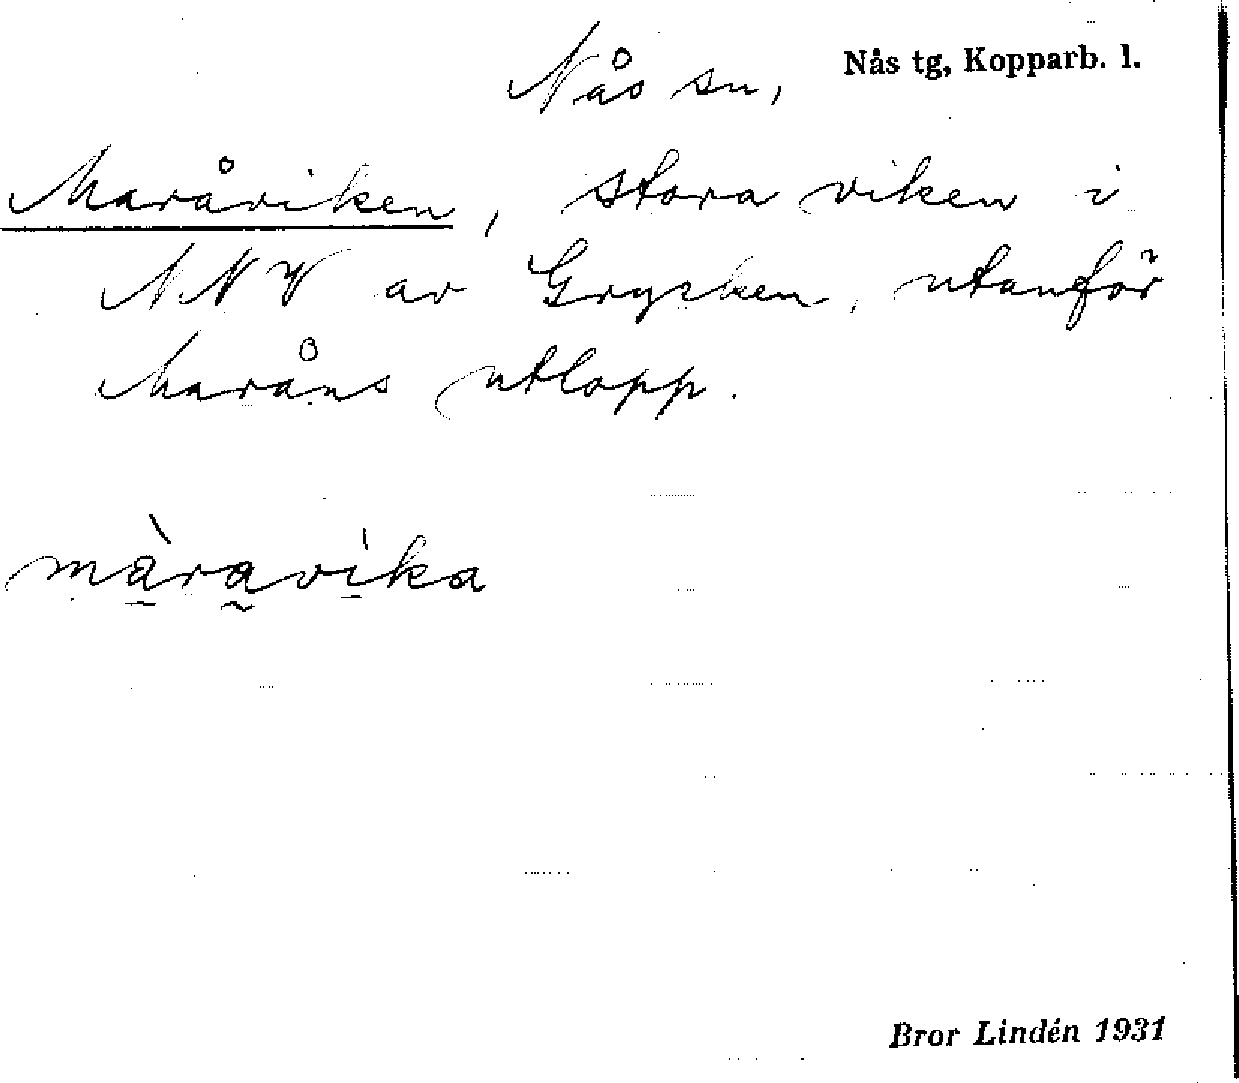 Nås sn, Nås tg, Kopparb. l.
Maråviken, stora viken i
NNV av Grycken, utanför
Maråns utlopp.
màravika
Bror Lindén 1931